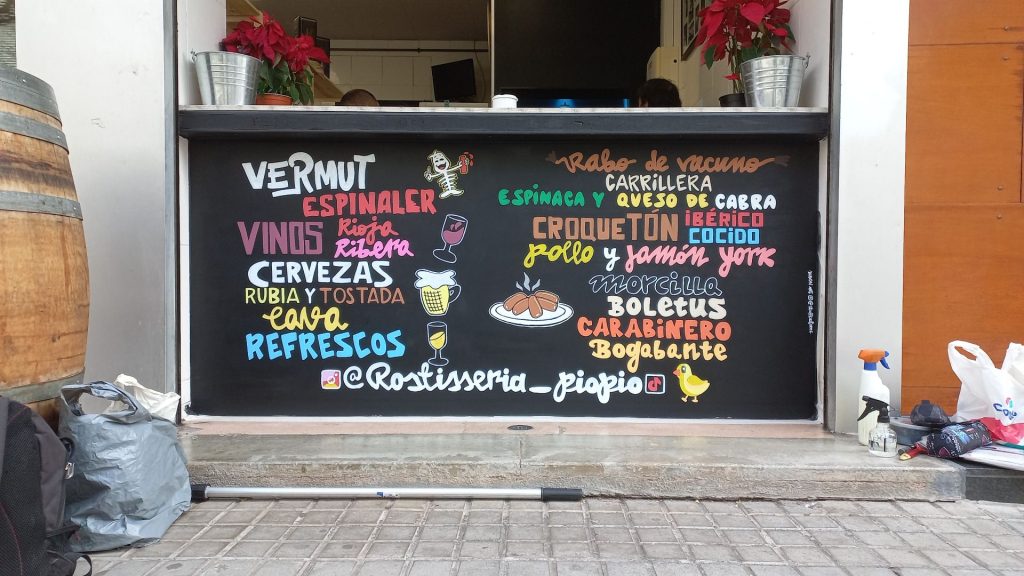 VERMUT
ESPINALER
VINOS Rioja
Ribera
CERVEZAS
RUBIA Y TOSTADA
Cava
REFRESCOS
Rabo de vacuno
CARRILLERA
ESPINACA Y QUESO DE CABRA
CROQUETÓN IBÉRICO
COCIDO
pollo y jamón york
morcilla
BOLETUS
CARABINERO
Bogabante
@Rostisseria_piopio